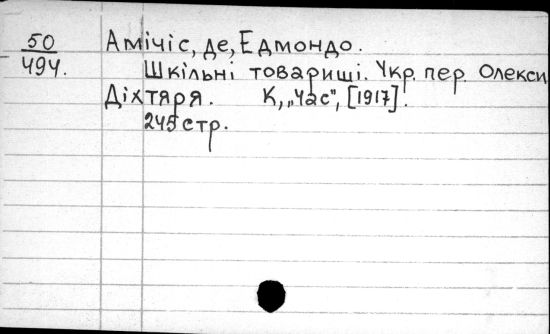 50
494.
Амічіс, де, Едмондо.
Шкільні товариші. Укр. пер. Олекси
Діхтяря. К, „Час", [1917].
245 стр.